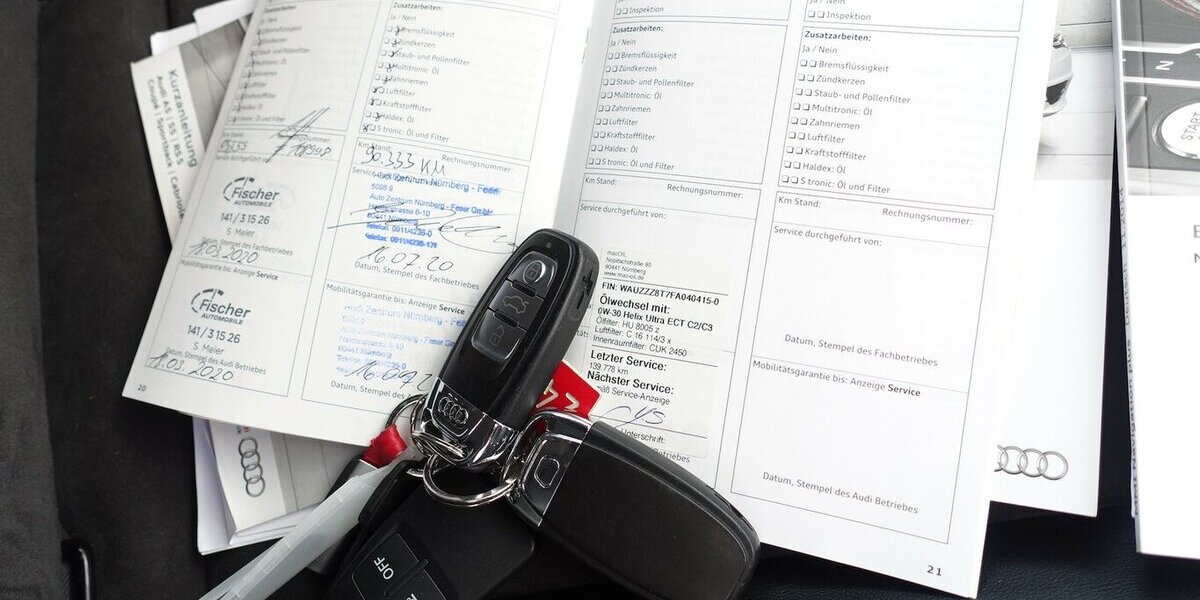 Kurzanleitung
Audi A5 | S5 RS 5
Coupé | Sportback | Cabriolet
Zusatzarbeiten:
Ja / Nein
Bremsflüssigkeit
Zündkerzen
Staub- und Pollenfilter
Multitronic: Öl
Zahnriemen
Luftfilter
Kraftstofffilter
Haldex: Öl
S tronic: Öl und Filter
Km Stand:
Service durchgeführt von:
Fischer
AUTOMOBILE
141 / 3 15 26
S. Meier
18.03.2020
Datum, Stempel des Fachbetriebes
Mobilitätsgarantie bis: Anzeige Service
Fischer
AUTOMOBILE
141 / 3 15 26
S. Meier
18.03.2020
Datum, Stempel des Audi Betriebes
20
Zusatzarbeiten:
Ja / Nein
Bremsflüssigkeit
Zündkerzen
Staub- und Pollenfilter
Multitronic: Öl
Zahnriemen
Luftfilter
Kraftstofffilter
Haldex: Öl
S tronic: Öl und Filter
Km Stand:
90.333 KM
Rechnungsnummer:
Auto Zentrum Nürnberg - Feser GmbH
90441 Nürnberg
Telefon: 0911/4236-0
Telefax: 0911/4236-171
16.07.20
Datum, Stempel des Fachbetriebes
Mobilitätsgarantie bis: Anzeige Service
90441 Nürnberg
Datum, Stempel des
Inspektion
Zusatzarbeiten:
Ja / Nein
Bremsflüssigkeit
Zündkerzen
Staub- und Pollenfilter
Multitronic: Öl
Zahnriemen
Luftfilter
Kraftstofffilter
Haldex: Öl
S tronic: Öl und Filter
Km Stand:
Rechnungsnummer:
Service durchgeführt von:
macOIL
Nopitschstraße 80
90441 Nürnberg
www.mac-oil.de
FIN: WAUZZZ8T7FA040415-0
Ölwechsel mit:
0W-30 Helix Ultra ECT C2/C3
Ölfilter: HU 8005 z
Luftfilter: C 16 114/3 x
Innenraumfilter: CUK 2450
Letzter Service:
139.778 km
Nächster Service:
Service-Anzeige
Unterschrift
Ja / Nein
Inspektion
Zusatzarbeiten:
Ja / Nein
Bremsflüssigkeit
Zündkerzen
Staub- und Pollenfilter
Multitronic: Öl
Zahnriemen
Luftfilter
Kraftstofffilter
Haldex: Öl
S tronic: Öl und Filter
Km Stand:
Rechnungsnummer:
Service durchgeführt von:
Datum, Stempel des Fachbetriebes
Mobilitätsgarantie bis: Anzeige Service
Datum, Stempel des Audi Betriebes
21
OFF
START